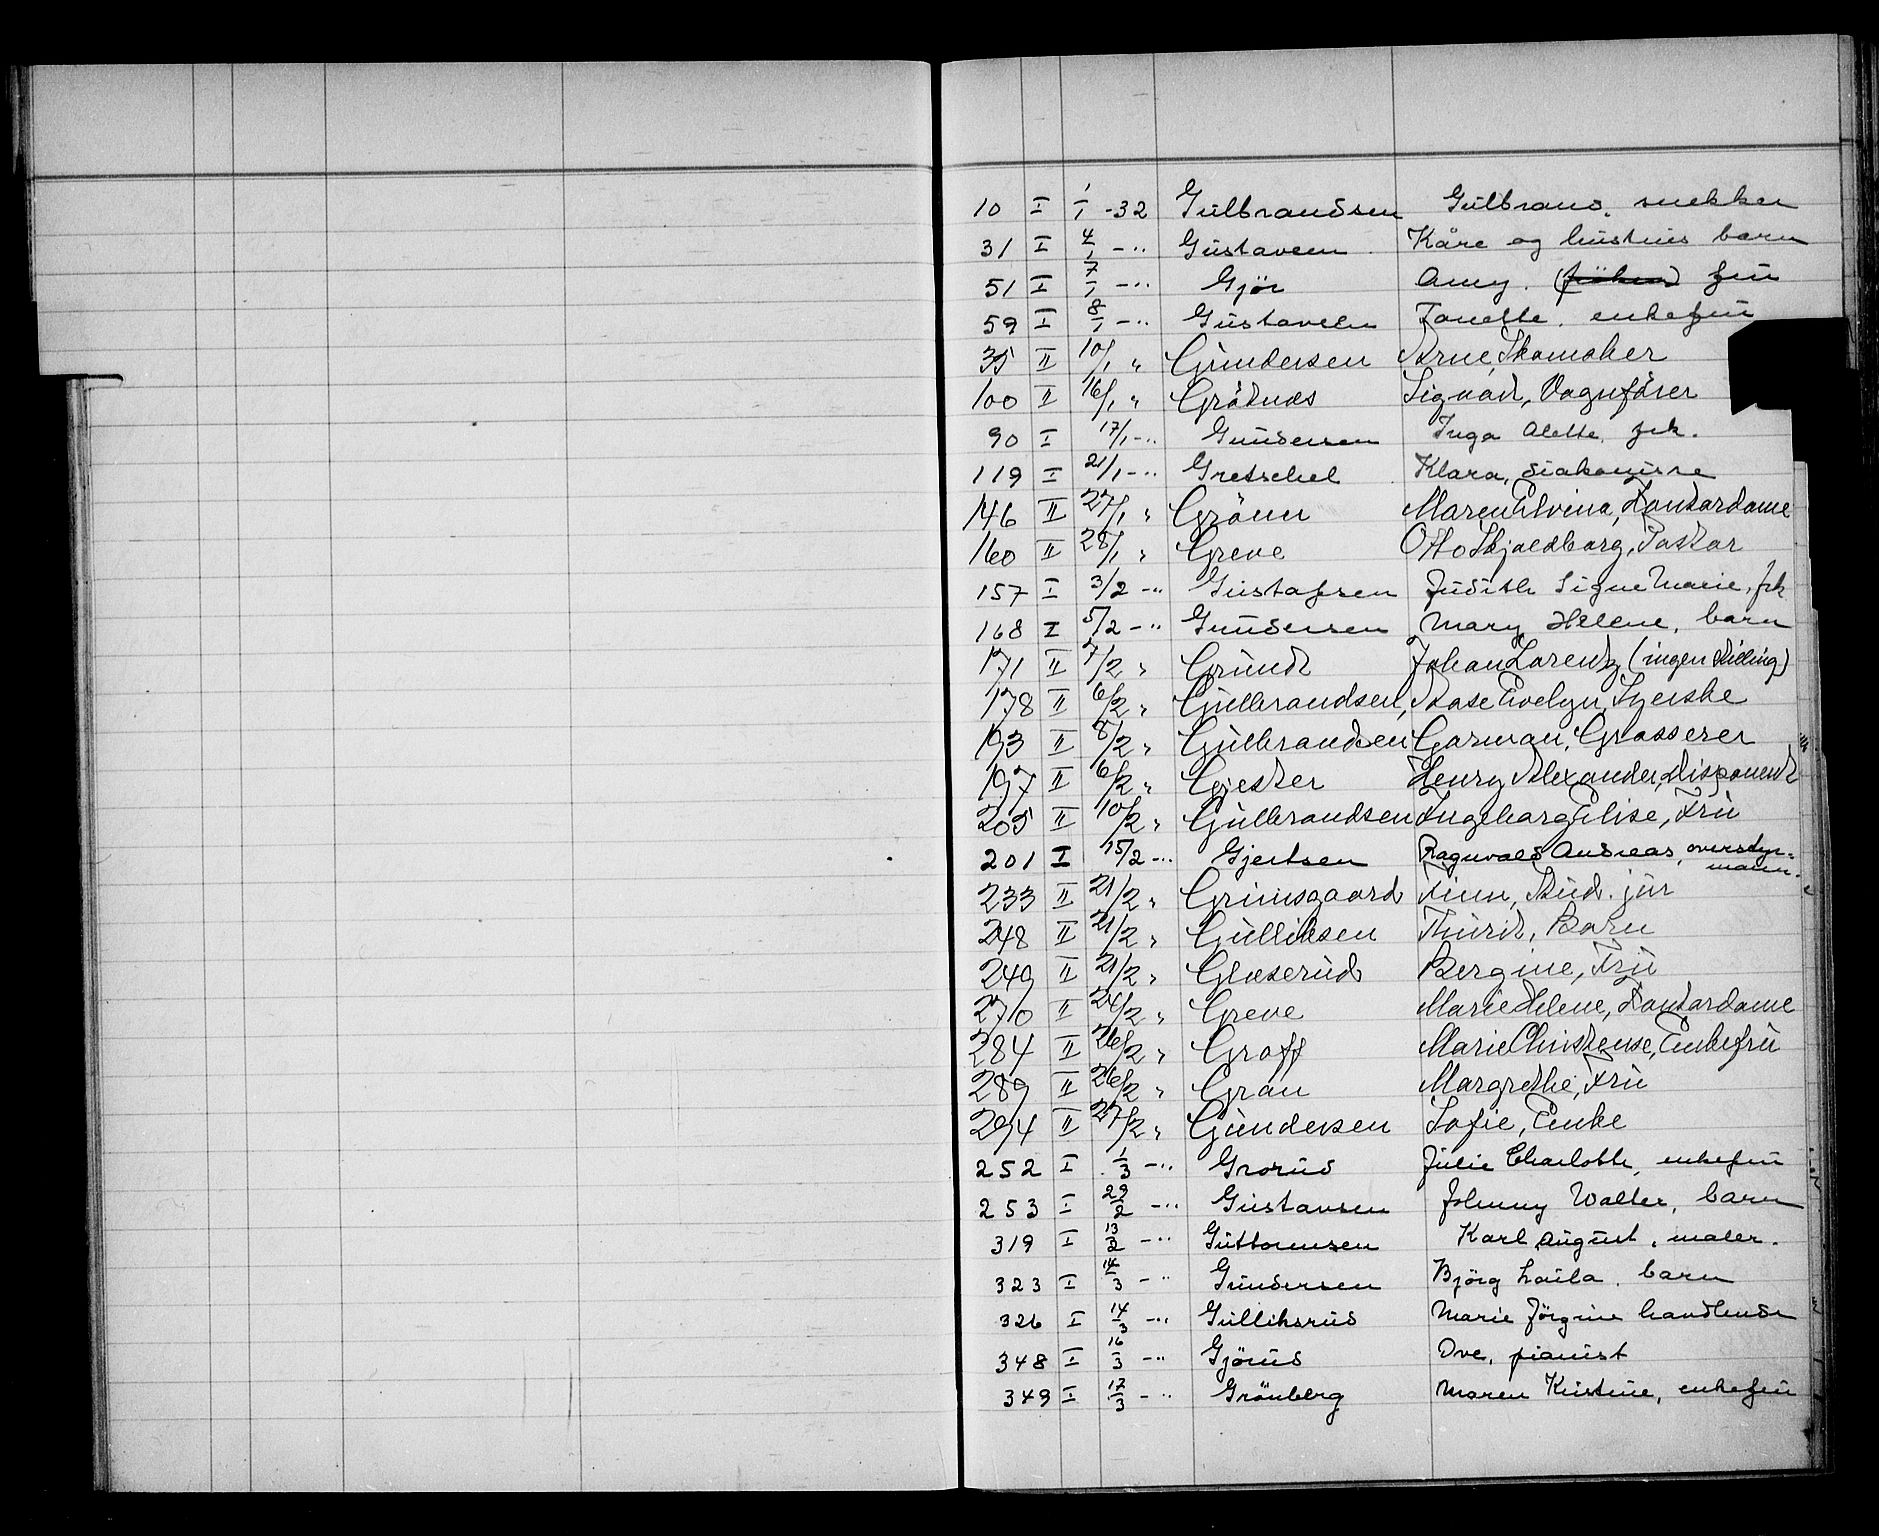 10 I 1/1 -32 Gulbrandsen Gulbrand, snekker
31 I 4/1 -" Gustavsen Kåre og hustrus barn
51 I 7/1 -" Gjör Anny. (fröken) fru
59 I 8/1 -" Gustavsen Janette, enkefru
35 II 10/1 " Gundersen Arne, Skomaker
100 II 16/1 " Grötnes Sigvad, Vognfører
90 I 17/1 -" Gundersen Inga Alette, frk.
119 I 21/1 -" Gretschel Klara, diakonisse
146 II 27/1 " Grönn Maren Elvina, Kontordame
160 II 28/1 " Greve Otto Skjoldborg, Pastor
157 I 3/2 -" Gustafsen Judith Signe Marie, frk
168 I 5/2 -" Gundersen Mary Helene, barn
171 II 7/2 " Grundt Johan Lorentz (ingen stilling)
178 II 6/2 " Gulbrandsen, Aase Evelyn, Syerske
193 II 8/2 " Gulbrandsen Gorman, Grosserer
197 II 6/2 " Gjester Henry Alexander, disponent
205 II 10/2 " Gulbrandsen Ingeborg Elise, Fru
201 I 15/2 -" Gjertsen Ragnvald Andreas, overstyr=
mann.
233 II 21/2 " Grimsgaard Finn, Stud. jur
248 II 21/2 " Gulliksen Thurid, Barn
249 II 21/2 " Glæserud Bergine, Fru
270 II 24/2 " Greve Marie Helene, Kontordame
284 II 26/2 " Groff Marie Christense, Enkefru
289 II 26/2 " Gran Margrethe, Fru
294 II 27/2 " Gundersen Sofie, Enke
252 I 1/3 -" Grorud Julie Charlotte, enkefru
253 I 29/2 -" Gustavsen Johnny Walter, barn
319 I 13/2 -" Guttormsen Karl August, maler.
323 I 14/3 -" Gundersen Björg Laila, barn
326 I 14/3 -" Gulliksrud Marie Jörgine handlende
348 I 16/3 -" Gjörud Ove, pianist
349 I 17/3 -" Grönberg Maren Kristine, enkefru